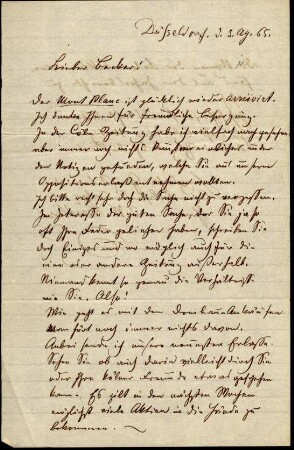 Düsseldorf. d. 3. Ag. 65.
Lieber Becker!
Der Mont Blanc ist glücklich wieder arrivirt.
Ich danke Ihnen für freundliche Besorgung.
In der Cöln Zeitung habe ich vielfach nachgesehen
aber immer noch nichts unter
den Notizen gefunden, welche Sie aus unserem
Oppositionserlaß entnehmen wollten.
Ich bitte recht sehr doch die Sache nicht zu vergessen.
Im Interesse der guten Sache, der Sie ja so
oft Ihre Feder geliehen haben, schreiben Sie
doch Einiges und wo möglich auch für die
eine oder andere Zeitung außerhalb.
Niemand kennt so genau die Verhältnisse
wie Sie. Also!
Wie geht es mit dem
Man hört noch immer nichts davon.
Anbei sende ich unsere neuesten Erlasse.
Sehen Sie ob auch darin vielleicht durch Sie
oder Ihre Kölner Freunde etwas geschehen
kann. Es gilt in den nächsten Wochen
möglichst viele Aktien in die Hände zu
bekommen. —